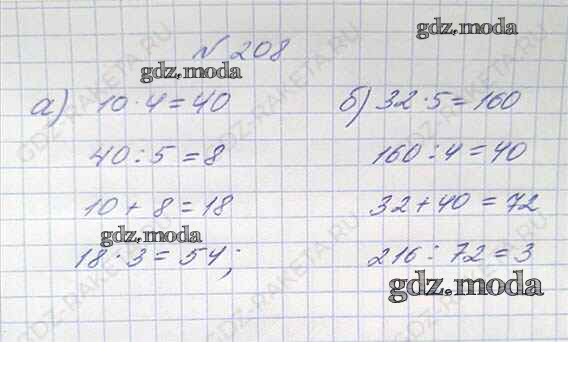 gdz.moda
№ 208
gdz.moda
а) 10 · 4 = 40
40 : 5 = 8
10 + 8 = 18
gdz.moda
18 · 3 = 54;
б) 32 · 5 = 160
160 : 4 = 40
32 + 40 = 72
216 : 72 = 3
gdz.moda
GDZ-RAKETA.RU
GDZ-RAKETA.RU
GDZ-RAKETA.RU
GDZ-RAKETA.RU